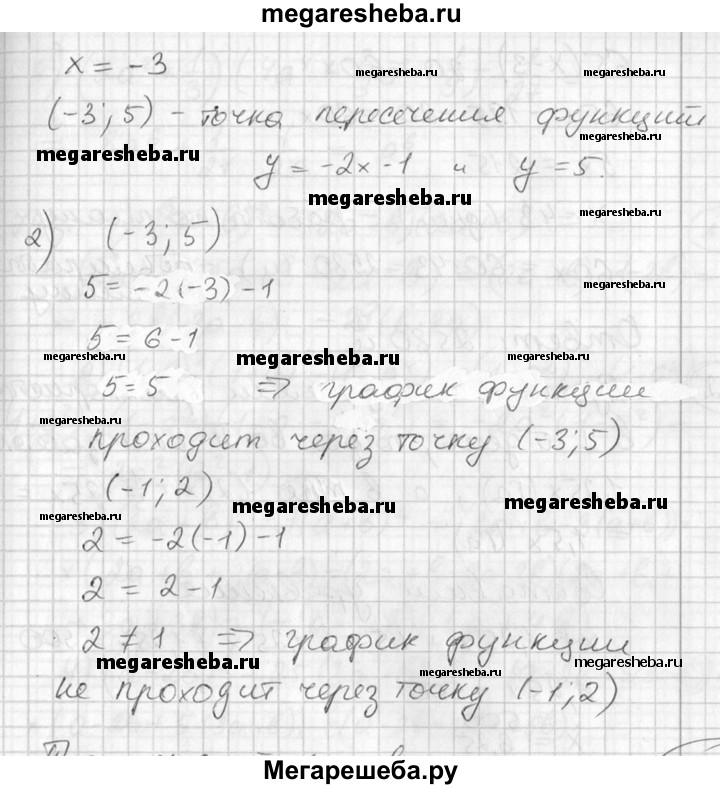 megaresheba.ru
x = -3
megaresheba.ru megaresheba.ru
(-3; 5) - точка пересечения функций
megaresheba.ru
megaresheba.ru
y = -2x -1 и y = 5.
megaresheba.ru
2) (-3; 5)
5 = -2(-3) -1
megaresheba.ru
5 = 6 -1
megaresheba.ru megaresheba.ru megaresheba.ru
5 = 5 => график функции
megaresheba.ru
проходит через точку (-3; 5)
(-1; 2)
megaresheba.ru megaresheba.ru
megaresheba.ru
2 = -2(-1) -1
2 = 2 -1
2 ≠ 1 => график функции
megaresheba.ru megaresheba.ru megaresheba.ru
не проходит через точку (-1; 2)
Мегарешеба.ру